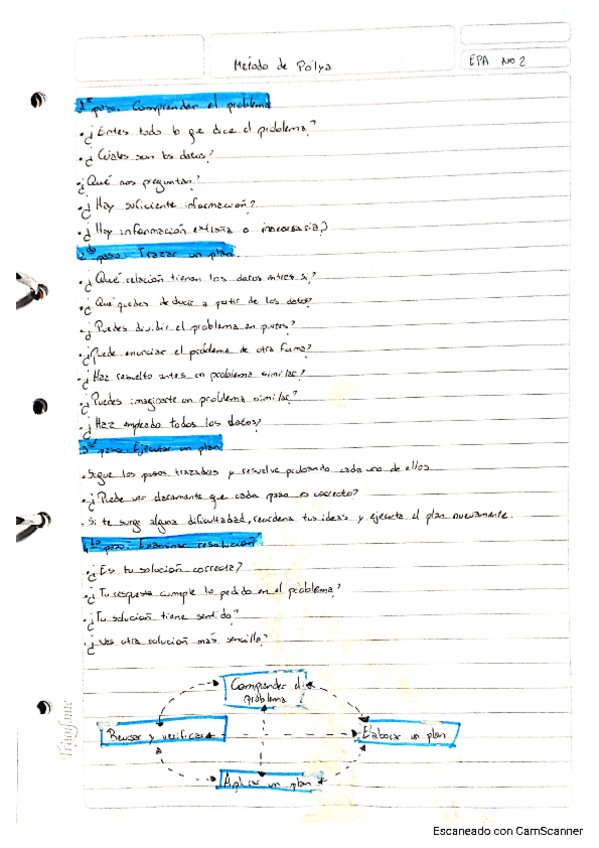 Método de Pólya
EPA No 2
1er paso. Comprender el problema
• ¿Entes todo lo que dice el problema?
• ¿Cúales son los datos?
• ¿Qué nos preguntan?
• ¿Hay suficiente información?
• ¿Hay información extraña o innecesaria?
2do paso. Trazar un plan.
• ¿Qué relación tienen los datos entre si?
• ¿Qué puedes deducir a partir de los datos?
• ¿Puedes dividir el problema en partes?
• ¿Puede enunciar el problema de otra forma?
• ¿Haz resuelto antes un problema similar?
• ¿Puedes imaginarte un problema similar?
• ¿Haz empleado todos los datos?
3er paso. Ejecutar un plan
• Sigue los pasos trazados y resuelve probando cada uno de ellos
• ¿Puede ver claramente que cada paso es correcto?
• Si te surge alguna dificultadad, reordena tus ideas y ejecuta el plan nuevamente.
4to paso. Examinar resolución
• ¿Es tu solución correcta?
• ¿Tu respuesta cumple lo pedido en el problema?
• ¿Tu solución tiene sentido?
• ¿Ves otra solución más sencilla?
Comprender el
problema
Revisar y verificar
Elaborar un plan
Aplicar un plan
Triunfante
Escaneado con CamScanner